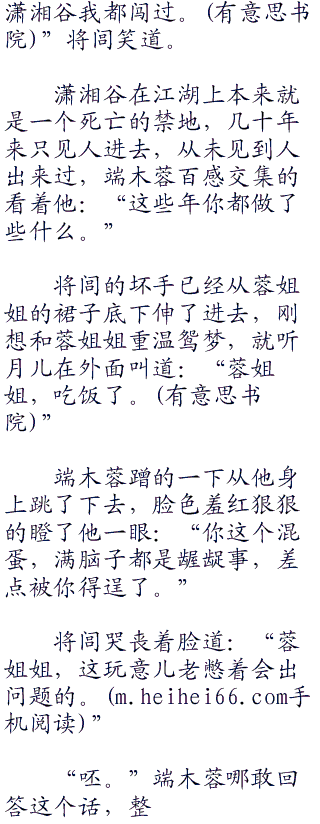 潇湘谷我都闯过。(有意思书
院)”将闾笑道。
潇湘谷在江湖上本来就
是一个死亡的禁地，几十年
来只见人进去，从未见到人
出来过，端木蓉百感交集的
看着他：“这些年你都做了
些什么。”
将闾的坏手已经从蓉姐
姐的裙子底下伸了进去，刚
想和蓉姐姐重温鸳梦，就听
月儿在外面叫道：“蓉姐
姐，吃饭了。(有意思书
院)”
端木蓉蹭的一下从他身
上跳了下去，脸色羞红狠狠
的瞪了他一眼：“你这个混
蛋，满脑子都是龌龊事，差
点被你得逞了。”
将闾哭丧着脸道：“蓉
姐姐，这玩意儿老憋着会出
问题的。(m.heihei66.com手
机阅读)”
“呸。”端木蓉哪敢回
答这个话，整